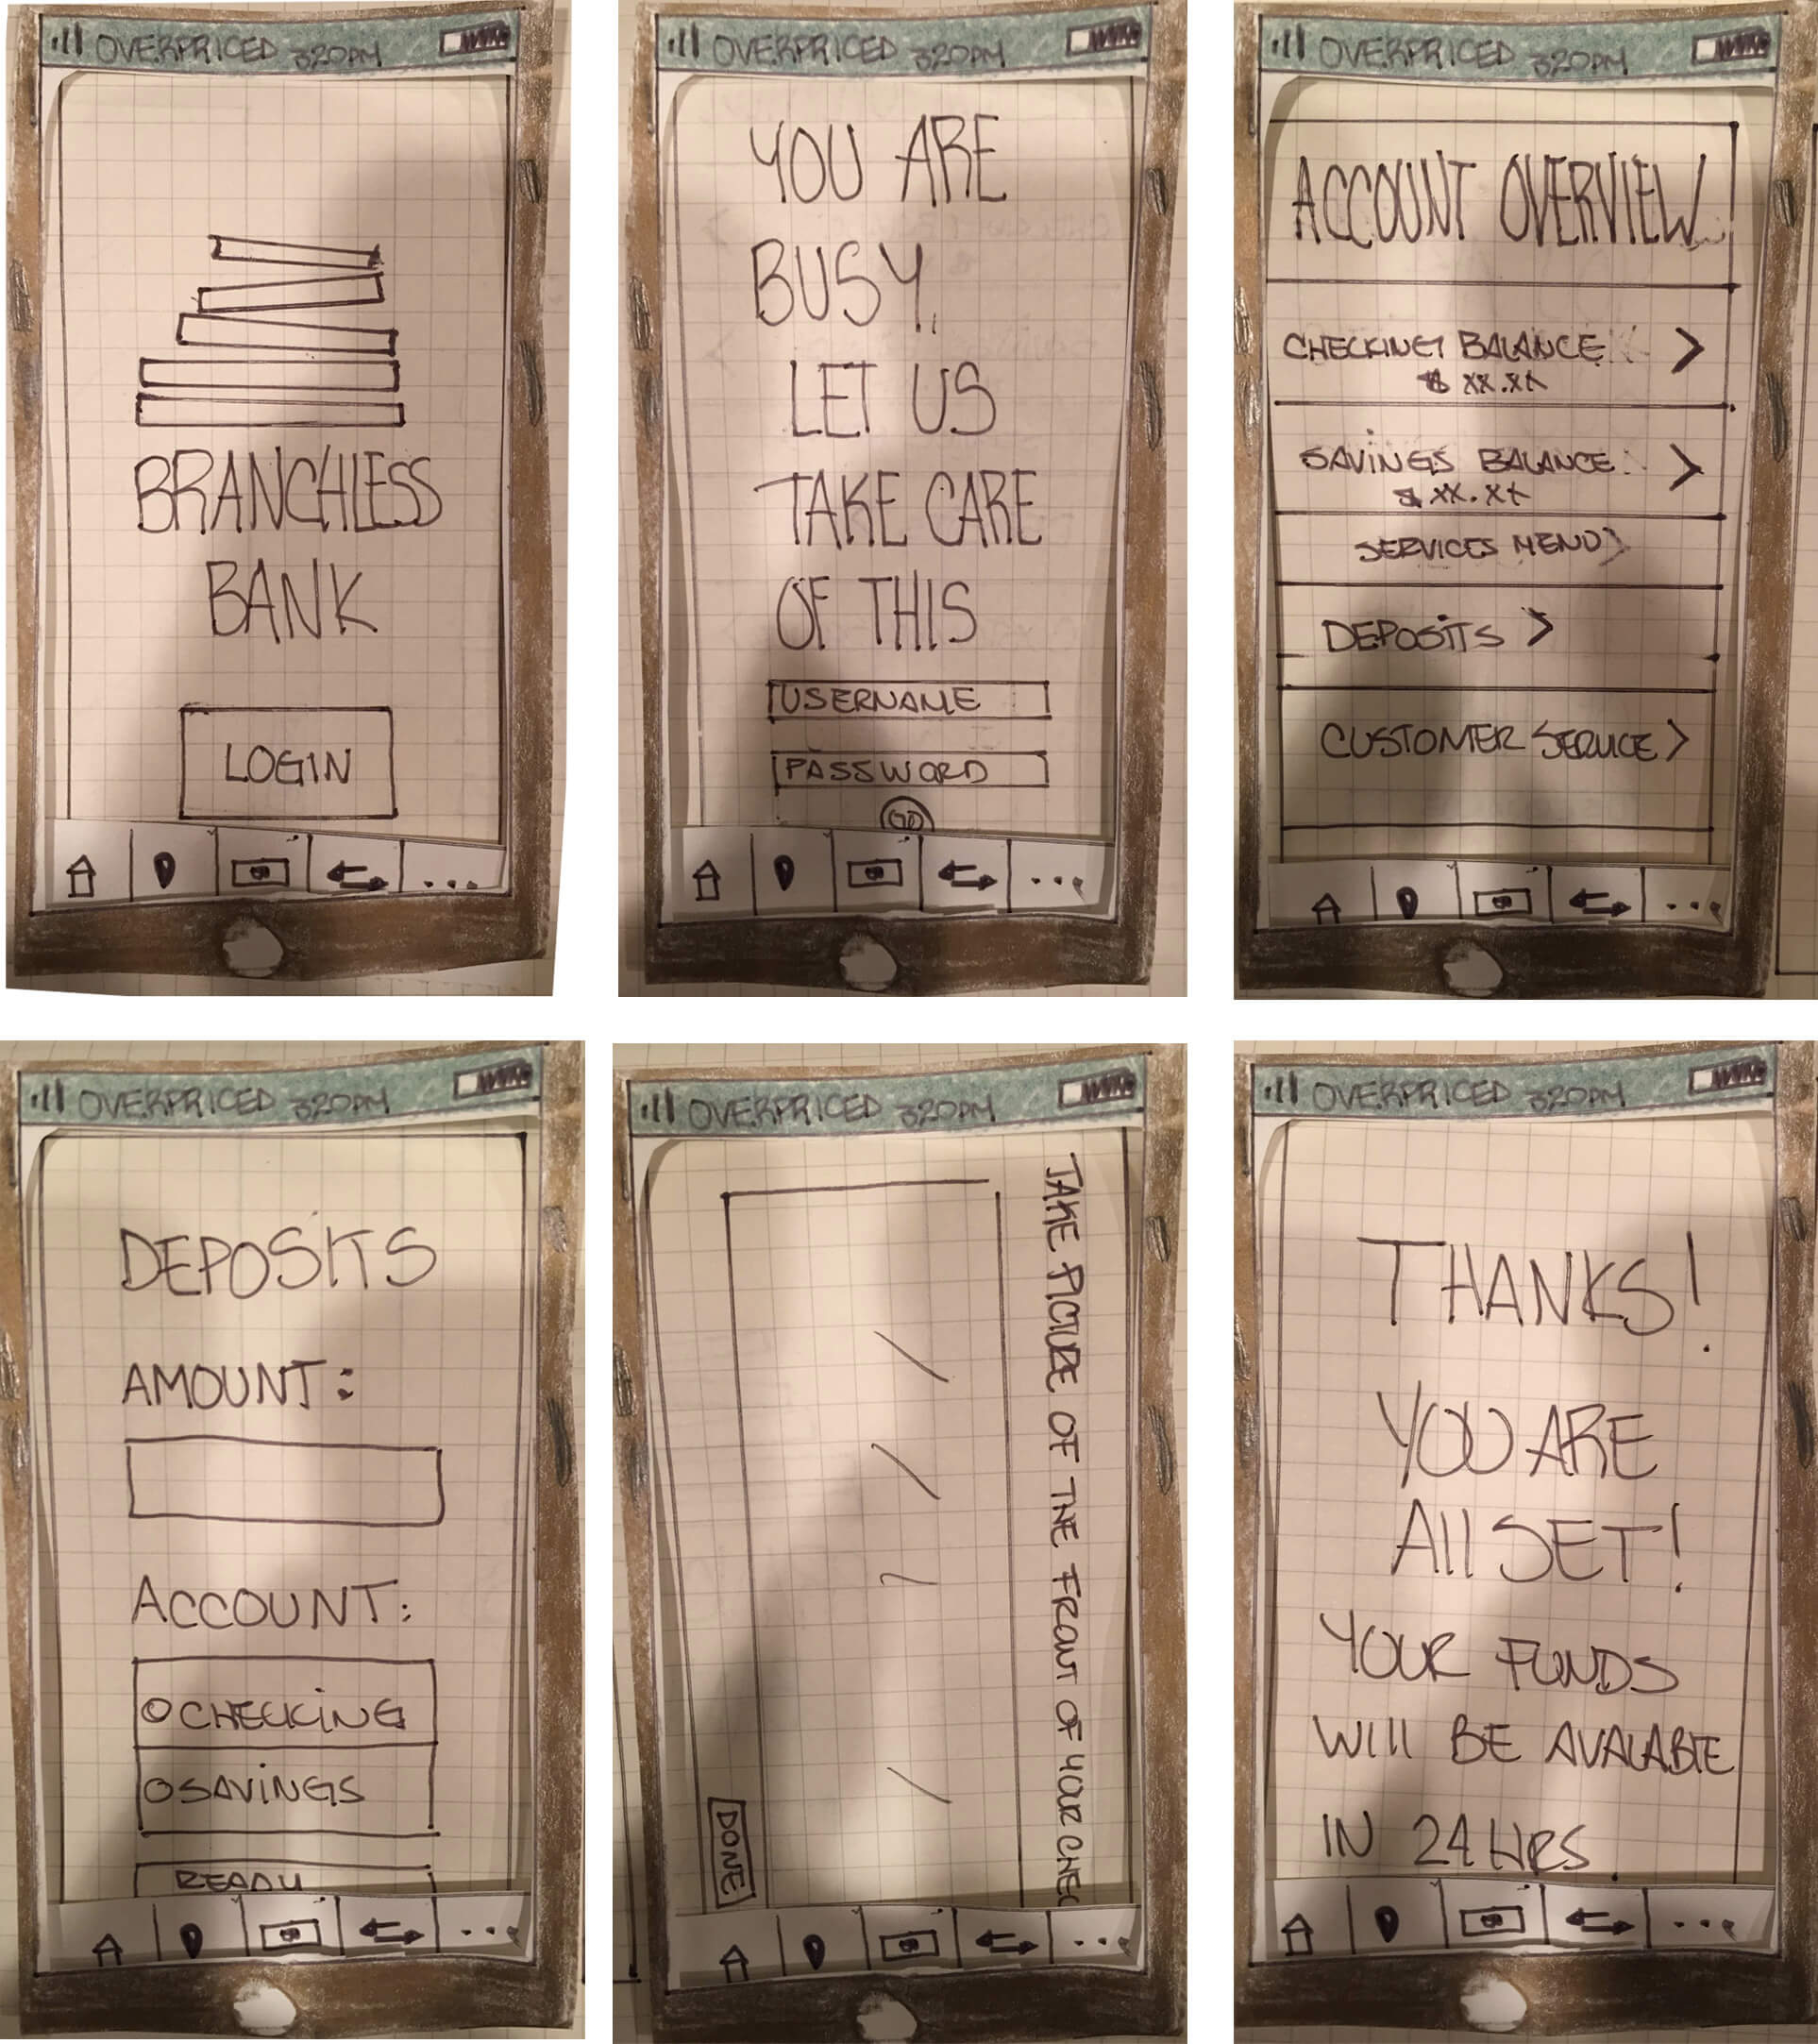 OVERPRICED 320PM
BRANCHLESS
BANK
LOGIN
OVERPRICED 320PM
YOU ARE
BUSY,
LET US
TAKE CARE
OF THIS
USERNAME
PASSWORD
GO
OVERPRICED 320PM
ACCOUNT OVERVIEW
CHECKING BALANCE >
$ XX.XX
SAVINGS BALANCE >
$ XX.XX
SERVICES MENU >
DEPOSITS >
CUSTOMER SERVICE >
OVERPRICED 320PM
DEPOSITS
AMOUNT:
ACCOUNT:
CHECKING
SAVINGS
READY
OVERPRICED 320PM
TAKE PICTURE OF THE FRONT OF YOUR CHEC
DONE
OVERPRICED 320PM
THANKS!
YOU ARE
All SET!
YOUR FUNDS
Will BE AVALABLE
IN 24 HRS.